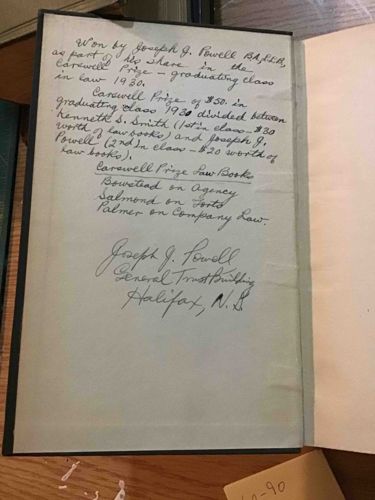 Won by Joseph J. Powell BA, LL.B,
as part of his share in the
Carswell Prize – graduating class
in law 1930.
Carswell Prize of $50. in
graduating class 1930 divided between
Kenneth S. Smith (1st in class – $30
worth of law books) and Joseph J.
Powell (2nd in class – $20 worth of
law books).
Carswell Prize Law Books
Bowstead on Agency
Salmond on Torts
Palmer on Company Law.
Joseph J. Powell
General Trust Building
Halifax, N.S.
-90